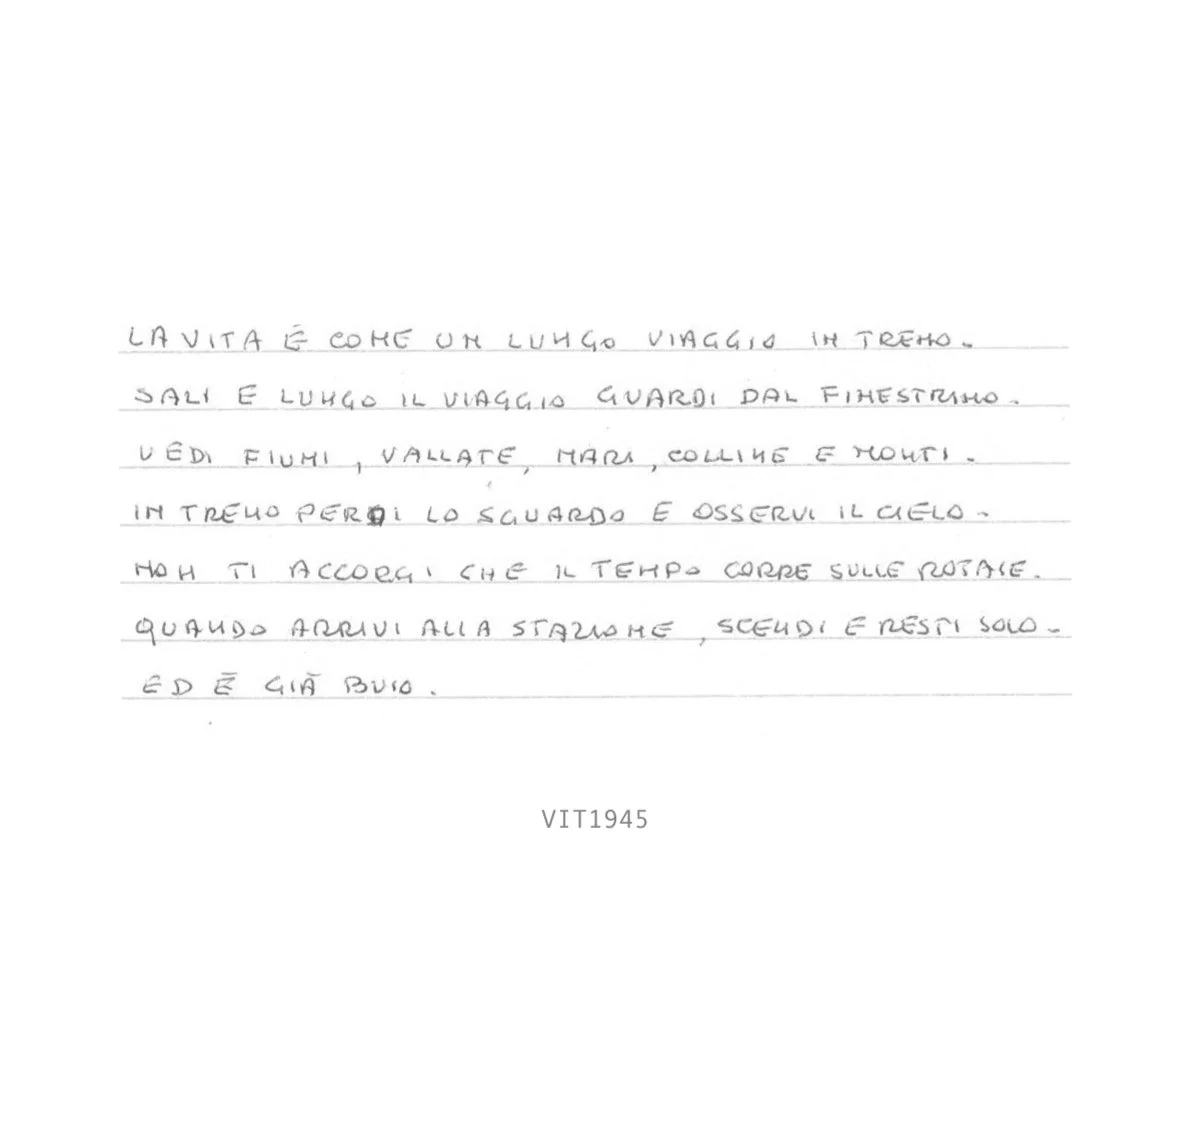 LA VITA È COME UN LUNGO VIAGGIO IN TRENO.
SALI E LUNGO IL VIAGGIO GUARDI DAL FINESTRINO.
VEDI FIUMI, VALLATE, MARI, COLLINE E MONTI.
IN TRENO PERDI LO SGUARDO E OSSERVI IL CIELO.
NON TI ACCORGI CHE IL TEMPO CORRE SULLE ROTAIE.
QUANDO ARRIVI ALLA STAZIONE, SCENDI E RESTI SOLO.
ED È GIÀ BUIO.
VIT1945